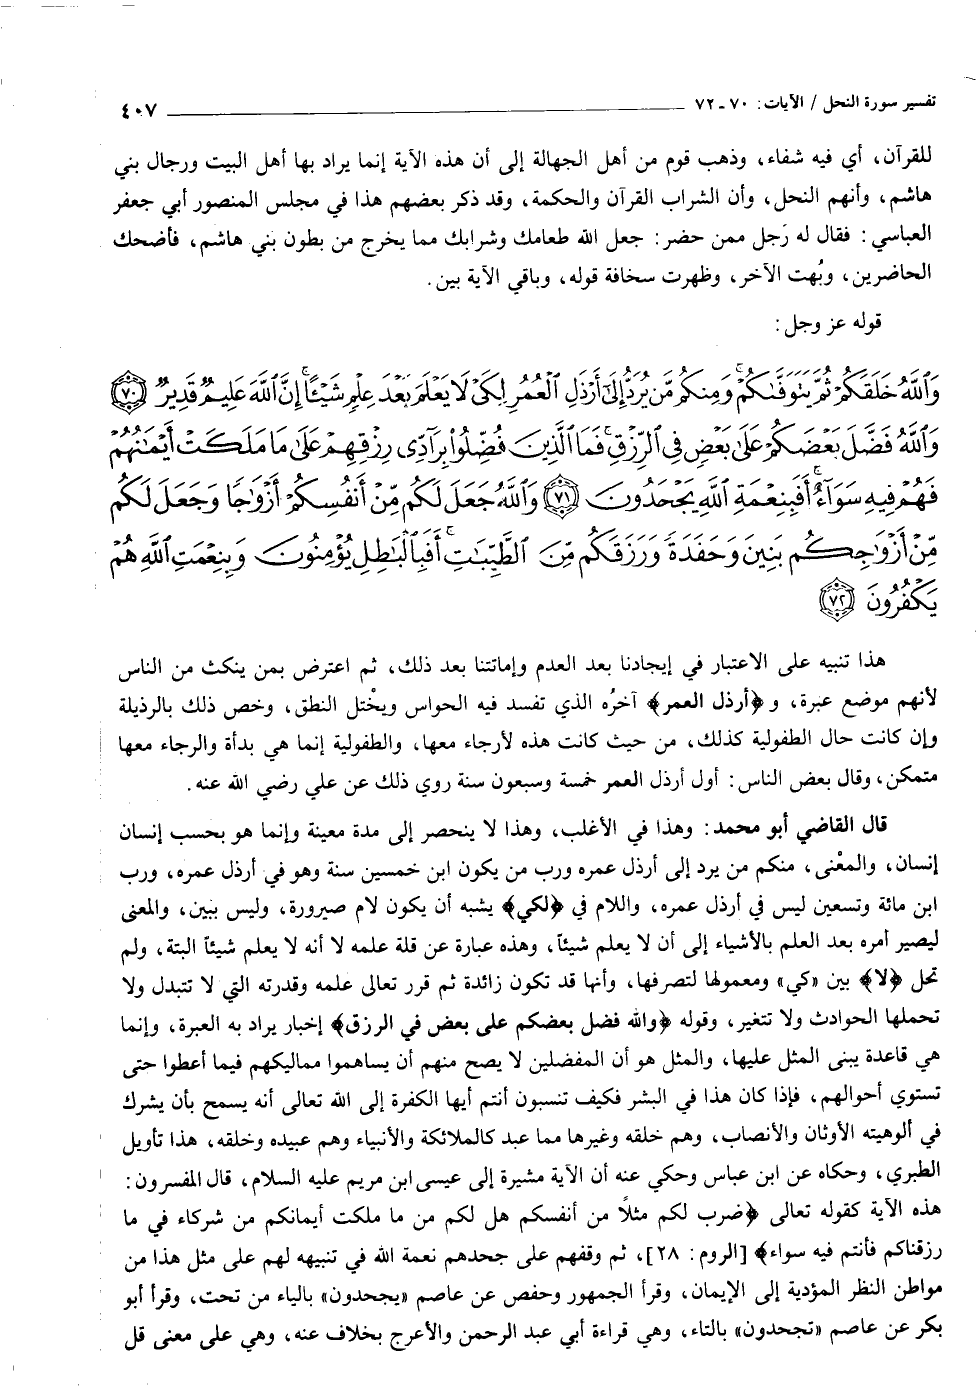 تفسير سورة النحل / الآيات: ٧٠ ـ ٧٢ ٤٠٧
للقرآن، أي فيه شفاء، وذهب قوم من أهل الجهالة إلى أن هذه الآية إنما يراد بها أهل البيت ورجال بني
هاشم، وأنهم النحل، وأن الشراب القرآن والحكمة، وقد ذكر بعضهم هذا في مجلس المنصور أبي جعفر
العباسي: فقال له رَجل ممن حضر: جعل الله طعامك وشرابك مما يخرج من بطون بني هاشم، فأضحك
الحاضرين، وبُهت الآخر، وظهرت سخافة قوله، وباقي الآية بين.
قوله عز وجل:
وَٱللَّهُ خَلَقَكُمْ ثُمَّ يَتَوَفَّىٰكُمْ وَمِنكُم مَّن يُرَدُّ إِلَىٰٓ أَرْذَلِ ٱلْعُمُرِ لِكَىْ لَا يَعْلَمَ بَعْدَ عِلْمٍ شَيْـًٔا إِنَّ ٱللَّهَ عَلِيمٌ قَدِيرٌ ﴿٧٠﴾
وَٱللَّهُ فَضَّلَ بَعْضَكُمْ عَلَىٰ بَعْضٍ فِى ٱلرِّزْقِ فَمَا ٱلَّذِينَ فُضِّلُوا۟ بِرَآدِّى رِزْقِهِمْ عَلَىٰ مَا مَلَكَتْ أَيْمَـٰنُهُمْ
فَهُمْ فِيهِ سَوَآءٌ أَفَبِنِعْمَةِ ٱللَّهِ يَجْحَدُونَ ﴿٧١﴾ وَٱللَّهُ جَعَلَ لَكُم مِّنْ أَنفُسِكُمْ أَزْوَٰجًا وَجَعَلَ لَكُم
مِّنْ أَزْوَٰجِكُم بَنِينَ وَحَفَدَةً وَرَزَقَكُم مِّنَ ٱلطَّيِّبَـٰتِ أَفَبِٱلْبَـٰطِلِ يُؤْمِنُونَ وَبِنِعْمَتِ ٱللَّهِ هُمْ
يَكْفُرُونَ ﴿٧٢﴾
هذا تنبيه على الاعتبار في إيجادنا بعد العدم وإماتتنا بعد ذلك، ثم اعترض بمن ينكث من الناس
لأنهم موضع عبرة، و﴿أرذل العمر﴾ آخرُه الذي تفسد فيه الحواس ويخْتل النطق، وخص ذلك بالرذيلة
وإن كانت حال الطفولية كذلك، من حيث كانت هذه لأرجاء معها، والطفولية إنما هي بدأة والرجاء معها
متمكن، وقال بعض الناس: أول أرذل العمر خمسة وسبعون سنة روي ذلك عن علي رضي الله عنه.
قال القاضي أبو محمد: وهذا في الأغلب، وهذا لا ينحصر إلى مدة معينة وإنما هو بحسب إنسان
إنسان، والمعْنى، منكم من يرد إلى أرذل عمره ورب من يكون ابن خمسين سنة وهو في أرذل عمره، ورب
ابن مائة وتسعين ليس في أرذل عمره، واللام في ﴿لكي﴾ يشبه أن يكون لام صيرورة، وليس ببين، والمعنى
ليصير أمره بعد العلم بالأشياء إلى أن لا يعلم شيئاً، وهذه عبارة عن قلة علمه لا أنه لا يعلم شيئاً البتة، ولم
تحل ﴿لا﴾ بين «كي» ومعمولها لتصرفها، وأنها قد تكون زائدة ثم قرر تعالى علمه وقدرته التي لا تتبدل ولا
تحملها الحوادث ولا تتغير، وقوله ﴿والله فضل بعضكم على بعض في الرزق﴾ إخبار يراد به العبرة، وإنما
هي قاعدة يبنى المثل عليها، والمثل هو أن المفضلين لا يصح منهم أن يساهموا مماليكهم فيما أعطوا حتى
تستوي أحوالهم، فإذا كان هذا في البشر فكيف تنسبون أنتم أيها الكفرة إلى الله تعالى أنه يسمح بأن يشرك
في ألوهيته الأوثان والأنصاب، وهم خلقه وغيرها مما عبد كالملائكة والأنبياء وهم عبيده وخلقه، هذا تأويل
الطبري، وحكاه عن ابن عباس وحكي عنه أن الآية مشيرة إلى عيسى ابن مريم عليه السلام، قال المفسرون:
هذه الآية كقوله تعالى ﴿ضرب لكم مثلاً من أنفسكم هل لكم من ما ملكت أيمانكم من شركاء في ما
رزقناكم فأنتم فيه سواء﴾ [الروم: ٢٨]، ثم وقفهم على جحدهم نعمة الله في تنبيهه لهم على مثل هذا من
مواطن النظر المؤدية إلى الإيمان، وقرأ الجمهور وحفص عن عاصم «يجحدون» بالياء من تحت، وقرأ أبو
بكر عن عاصم «تجحدون» بالتاء، وهي قراءة أبي عبد الرحمن والأعرج بخلاف عنه، وهي على معنى قل